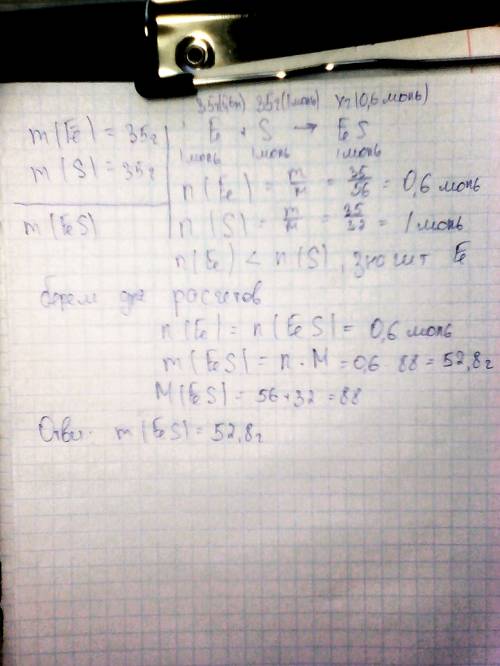 35г(0,6м) 35г(1моль) xг(0,6 моль)
m(Fe) = 35г
Fe + S → FeS
m(S) = 35г
1моль 1моль 1моль
n(Fe) = m/M = 35/56 = 0,6 моль
m(FeS)
n(S) = m/M = 35/32 = 1 моль
n(Fe) < n(S), значит Fe
берем для расчетов
n(Fe) = n(FeS) = 0,6 моль
m(FeS) = n · M = 0,6 · 88 = 52,8г
M(FeS) = 56 + 32 = 88
m(FeS) = 52,8г